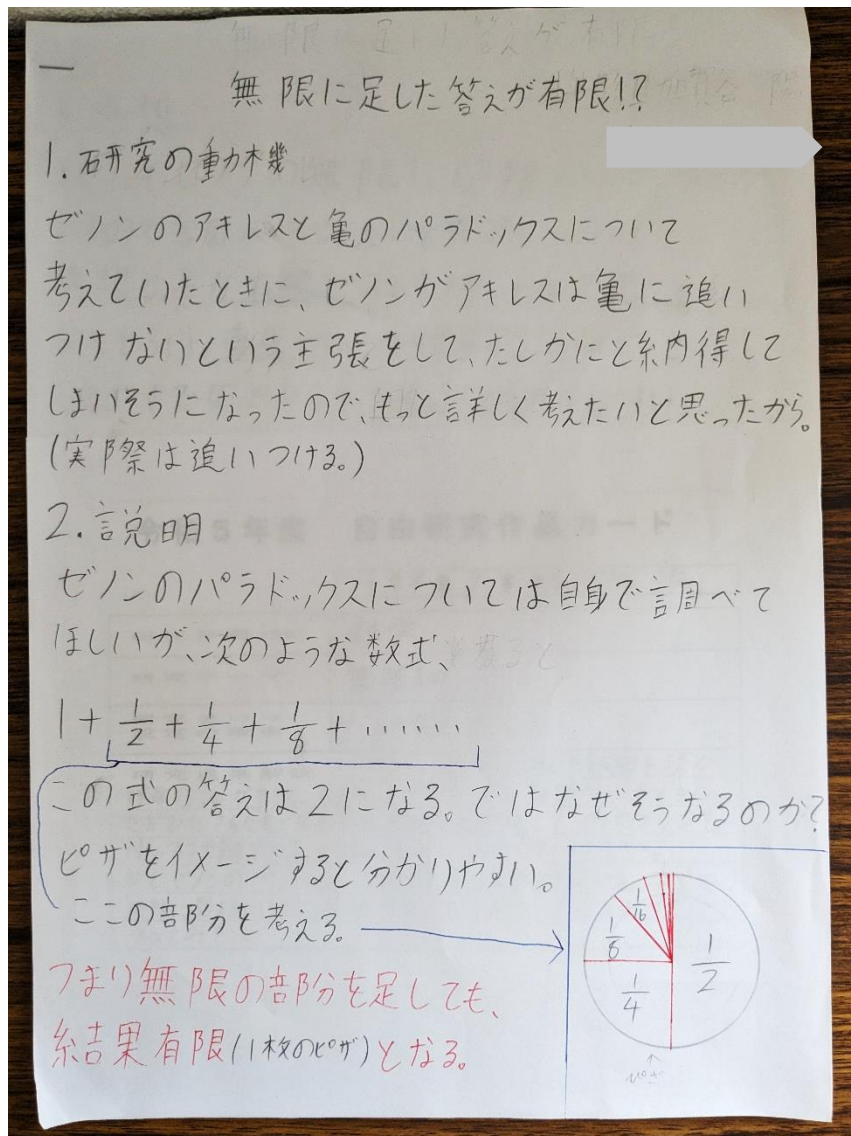 無限に足した答えが有限!?
1.研究の動機
ゼノンのアキレスと亀のパラドックスについて
考えていたときに、ゼノンがアキレスは亀に追い
つけないという主張をして、たしかにと納得して
しまいそうになったので、もっと詳しく考えたいと思ったから。
(実際は追いつける。)
2.説明
ゼノンのパラドックスについては自身で調べて
ほしいが、次のような数式、
1+1/2+1/4+1/8+……
この式の答えは2になる。ではなぜそうなるのか?
ピザをイメージすると分かりやすい。
ここの部分を考える。
1/16
1/8
1/2
1/4
ピザ
つまり無限の部分を足しても、
結果有限(1枚のピザ)となる。